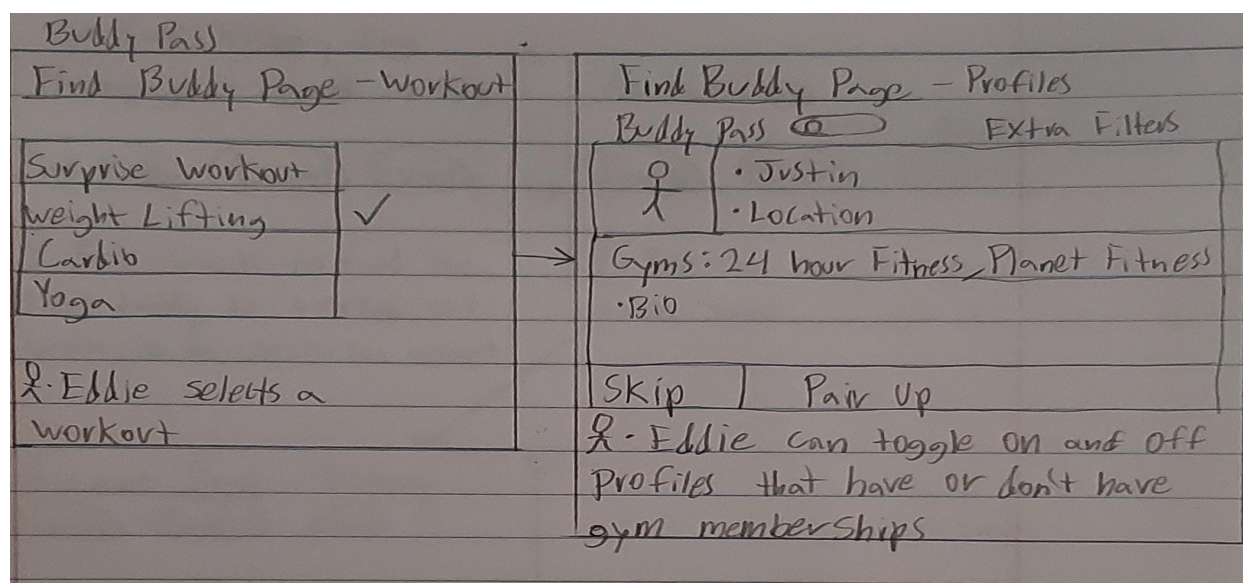 Buddy Pass
Find Buddy Page - Workout
Surprise Workout
Weight Lifting ✓
Cardio
Yoga
Eddie selects a
workout
Find Buddy Page - Profiles
Buddy Pass Extra Filters
· Justin
· Location
Gyms: 24 hour Fitness, Planet Fitness
· Bio
Skip Pair Up
· Eddie can toggle on and off
profiles that have or don't have
gym memberships